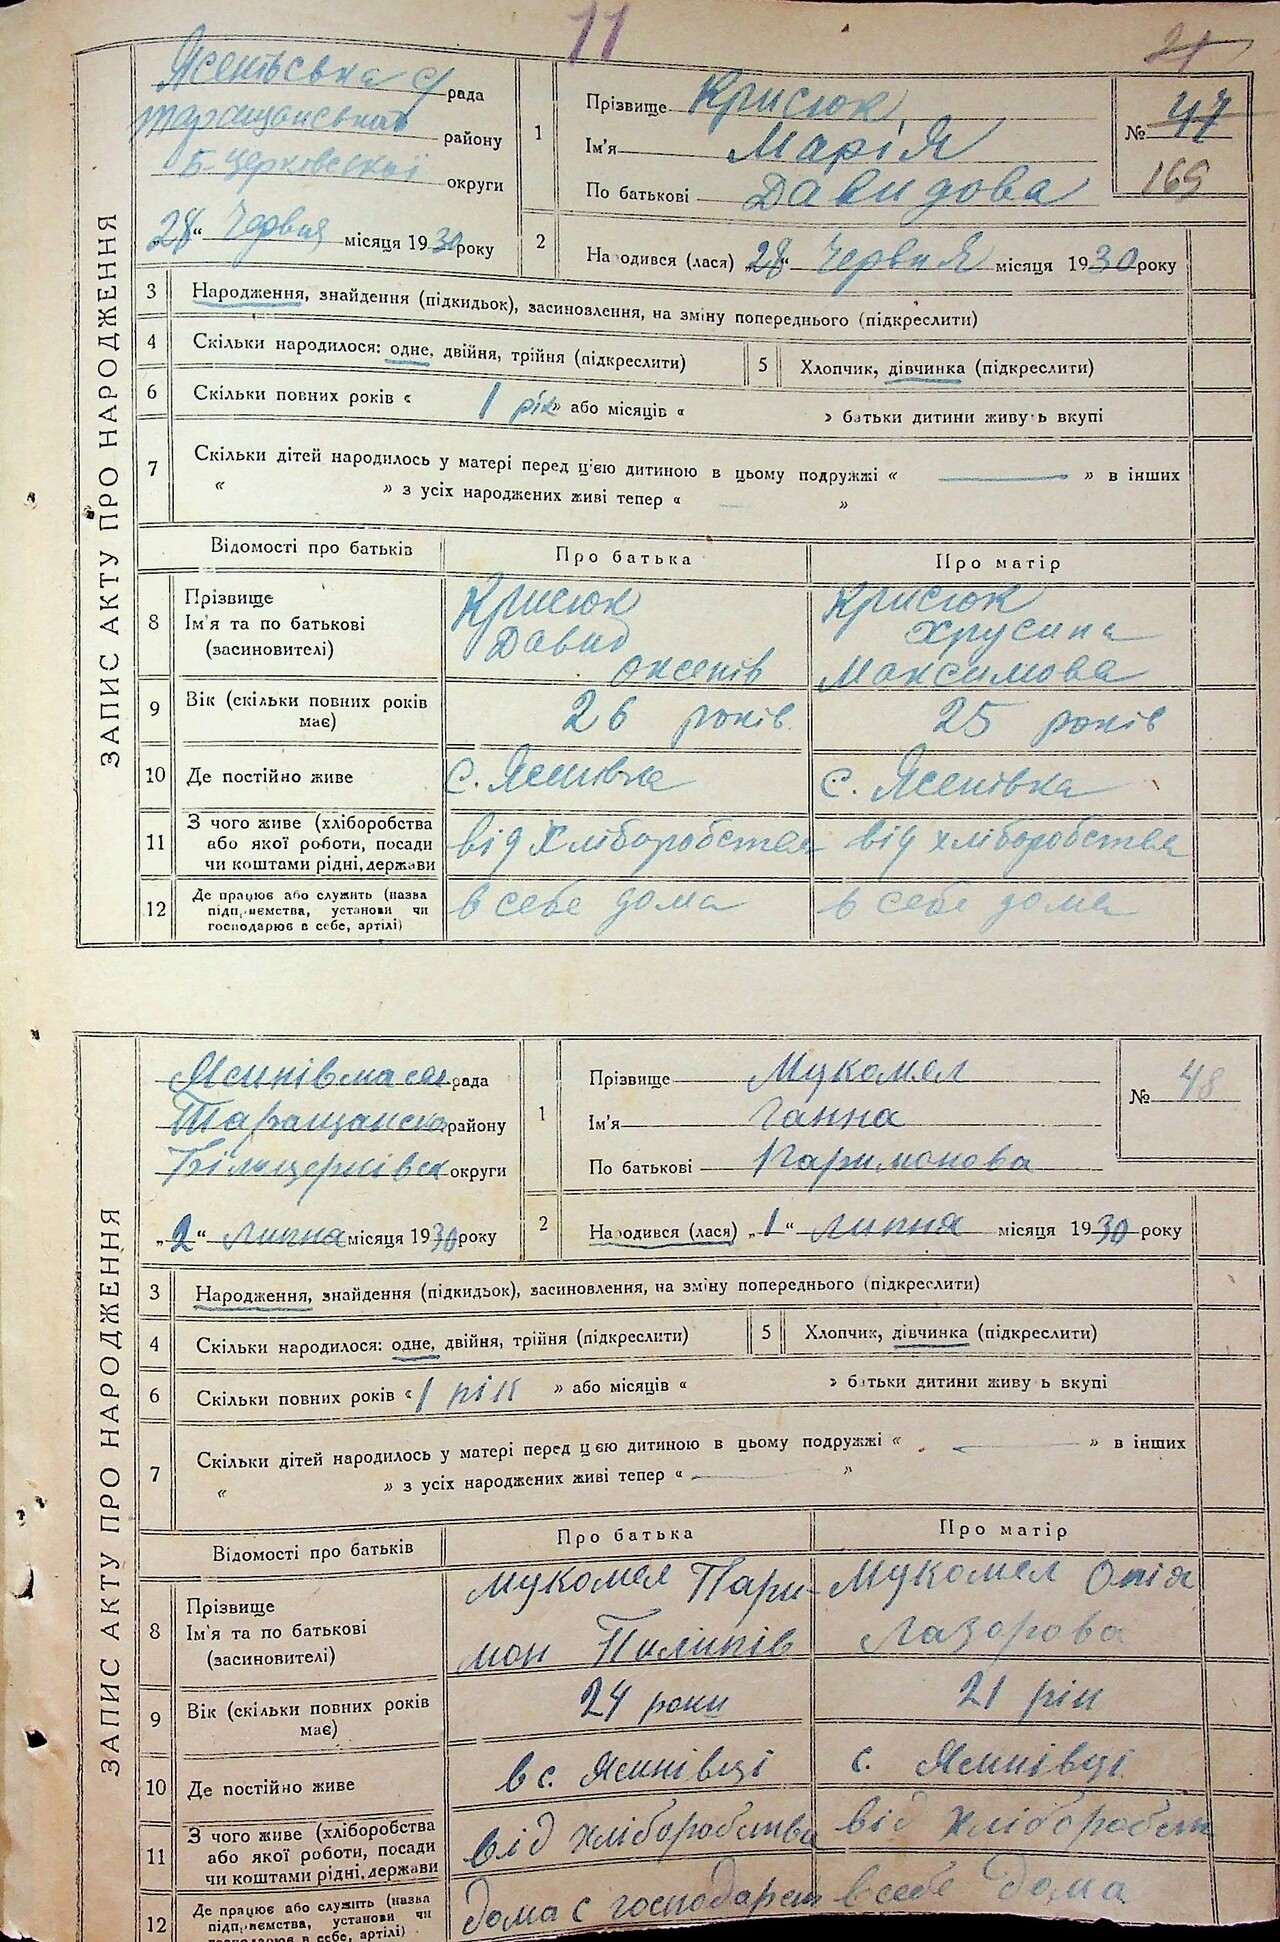 11
21
ЗАПИС АКТУ ПРО НАРОДЖЕННЯ
Ясенівська с/рада
Таращанського району
Б-Церковської округи
„28“ Червня місяця 1930 року
1
Прізвище Крисюк
Ім'я Марія
По батькові Давидова
№ 47
165
2
Народився (лася) „28“ Червня місяця 1930 року
3 Народження, знайдення (підкидьок), засиновлення, на зміну попереднього (підкреслити)
4 Скільки народилося: одне, двійня, трійня (підкреслити)
5 Хлопчик, дівчинка (підкреслити)
6 Скільки повних років « 1 рік » або місяців « » батьки дитини живуть вкупі
7 Скільки дітей народилось у матері перед ц'єю дитиною в цьому подружжі « — » в інших
« » з усіх народжених живі тепер « »
Відомості про батьків Про батька Про матір
8 Прізвище
Ім'я та по батькові
(засиновителі)
Крисюк
Давид
Оксенів
Крисюк
Хрусина
Максимова
9 Вік (скільки повних років
має)
26 років
25 років
10 Де постійно живе с. Ясенівка с. Ясенівка
11 З чого живе (хліборобства
або якої роботи, посади
чи коштами рідні, держави
від хліборобства від хліборобства
12 Де працює або служить (назва
підприємства, установи чи
господарює в себе, артілі)
в себе дома в себе дома
ЗАПИС АКТУ ПРО НАРОДЖЕННЯ
рада
району
округи
„2“ липня місяця 1930 року
1
Прізвище Мукомел
Ім'я Ганна
По батькові Паримонова
№ 48
2
Народився (лася) „1“ липня місяця 1930 року
3 Народження, знайдення (підкидьок), засиновлення, на зміну попереднього (підкреслити)
4 Скільки народилося: одне, двійня, трійня (підкреслити)
5 Хлопчик, дівчинка (підкреслити)
6 Скільки повних років « 1 рік » або місяців « » батьки дитини живуть вкупі
7 Скільки дітей народилось у матері перед цією дитиною в цьому подружжі « — » в інших
« » з усіх народжених живі тепер « — »
Відомості про батьків Про батька Про матір
8 Прізвище
Ім'я та по батькові
(засиновителі)
Мукомел Пари-
мон Пилипів
Мукомел
Лазорова
9 Вік (скільки повних років
має)
24 роки
21 рік
10 Де постійно живе в с. Яснівці с. Яснівці
11 З чого живе (хліборобства
або якої роботи, посади
чи коштами рідні, держави
від хліборобства від хліборобст
12 Де працює або служить (назва
підприємства, установи чи
господарює в себе, артілі)
дома с господарст в себе дома